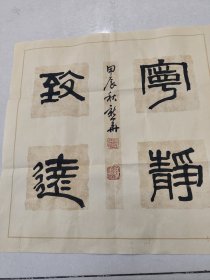 寧靜
致遠
甲辰秋